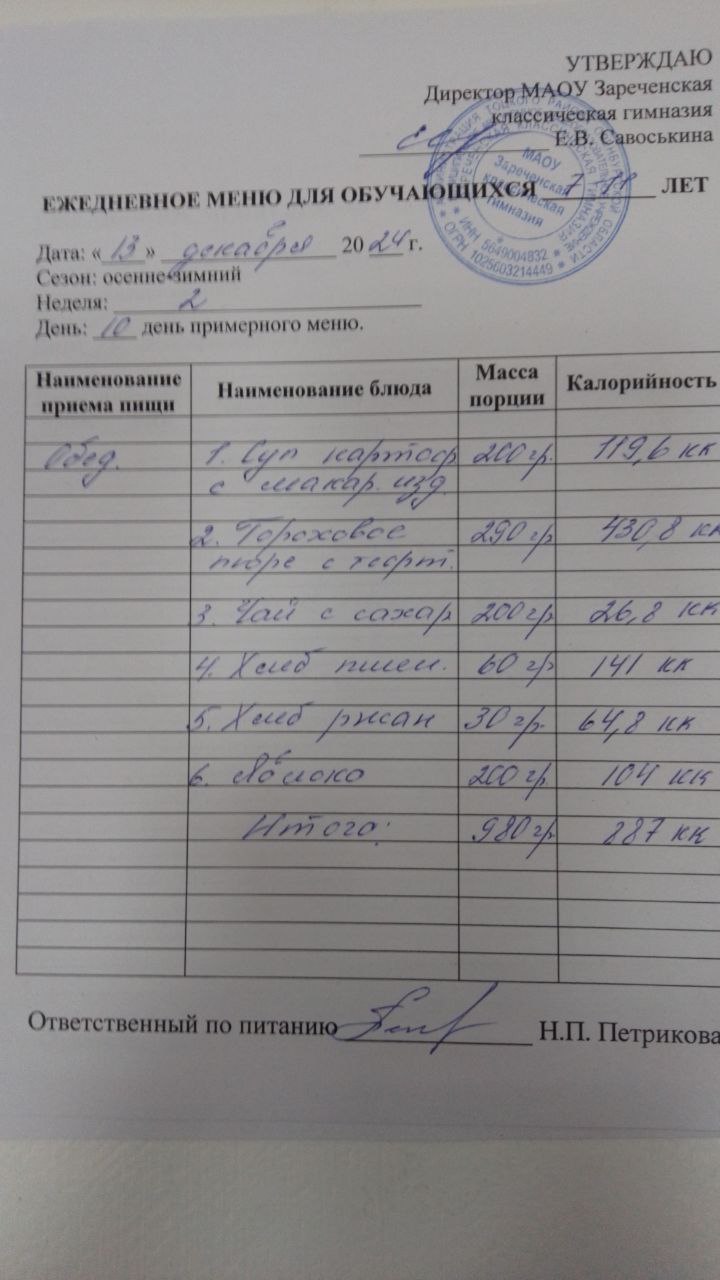 УТВЕРЖДАЮ
Директор МАОУ Зареченская
классическая гимназия
Е.В. Савоськина
МАОУ
Зареченская
классическая
гимназия
* ИНН 5649004832 *
* ОГРН 1025603214449 *
ЕЖЕДНЕВНОЕ МЕНЮ ДЛЯ ОБУЧАЮЩИХСЯ 7-11 ЛЕТ
Дата: « 13 » декабря 2024 г.
Сезон: осенне-зимний
Неделя: 2
День: 10 день примерного меню.
Наименование приема пищи Наименование блюда Масса порции Калорийность
Обед. 1. Суп картоф 200 гр. 119,6 кк
с макар. изд.
2. Гороховое 290 гр 430,8 кк
пюре с
3. Чай с сахар 200 гр 26,8 кк
4. Хлеб пшен. 60 гр 141 кк
5. Хлеб ржан 30 гр. 64,8 кк
6. Яблоко 200 гр. 104 кк
Итого: 980 гр 887 кк
Ответственный по питанию Н.П. Петрикова